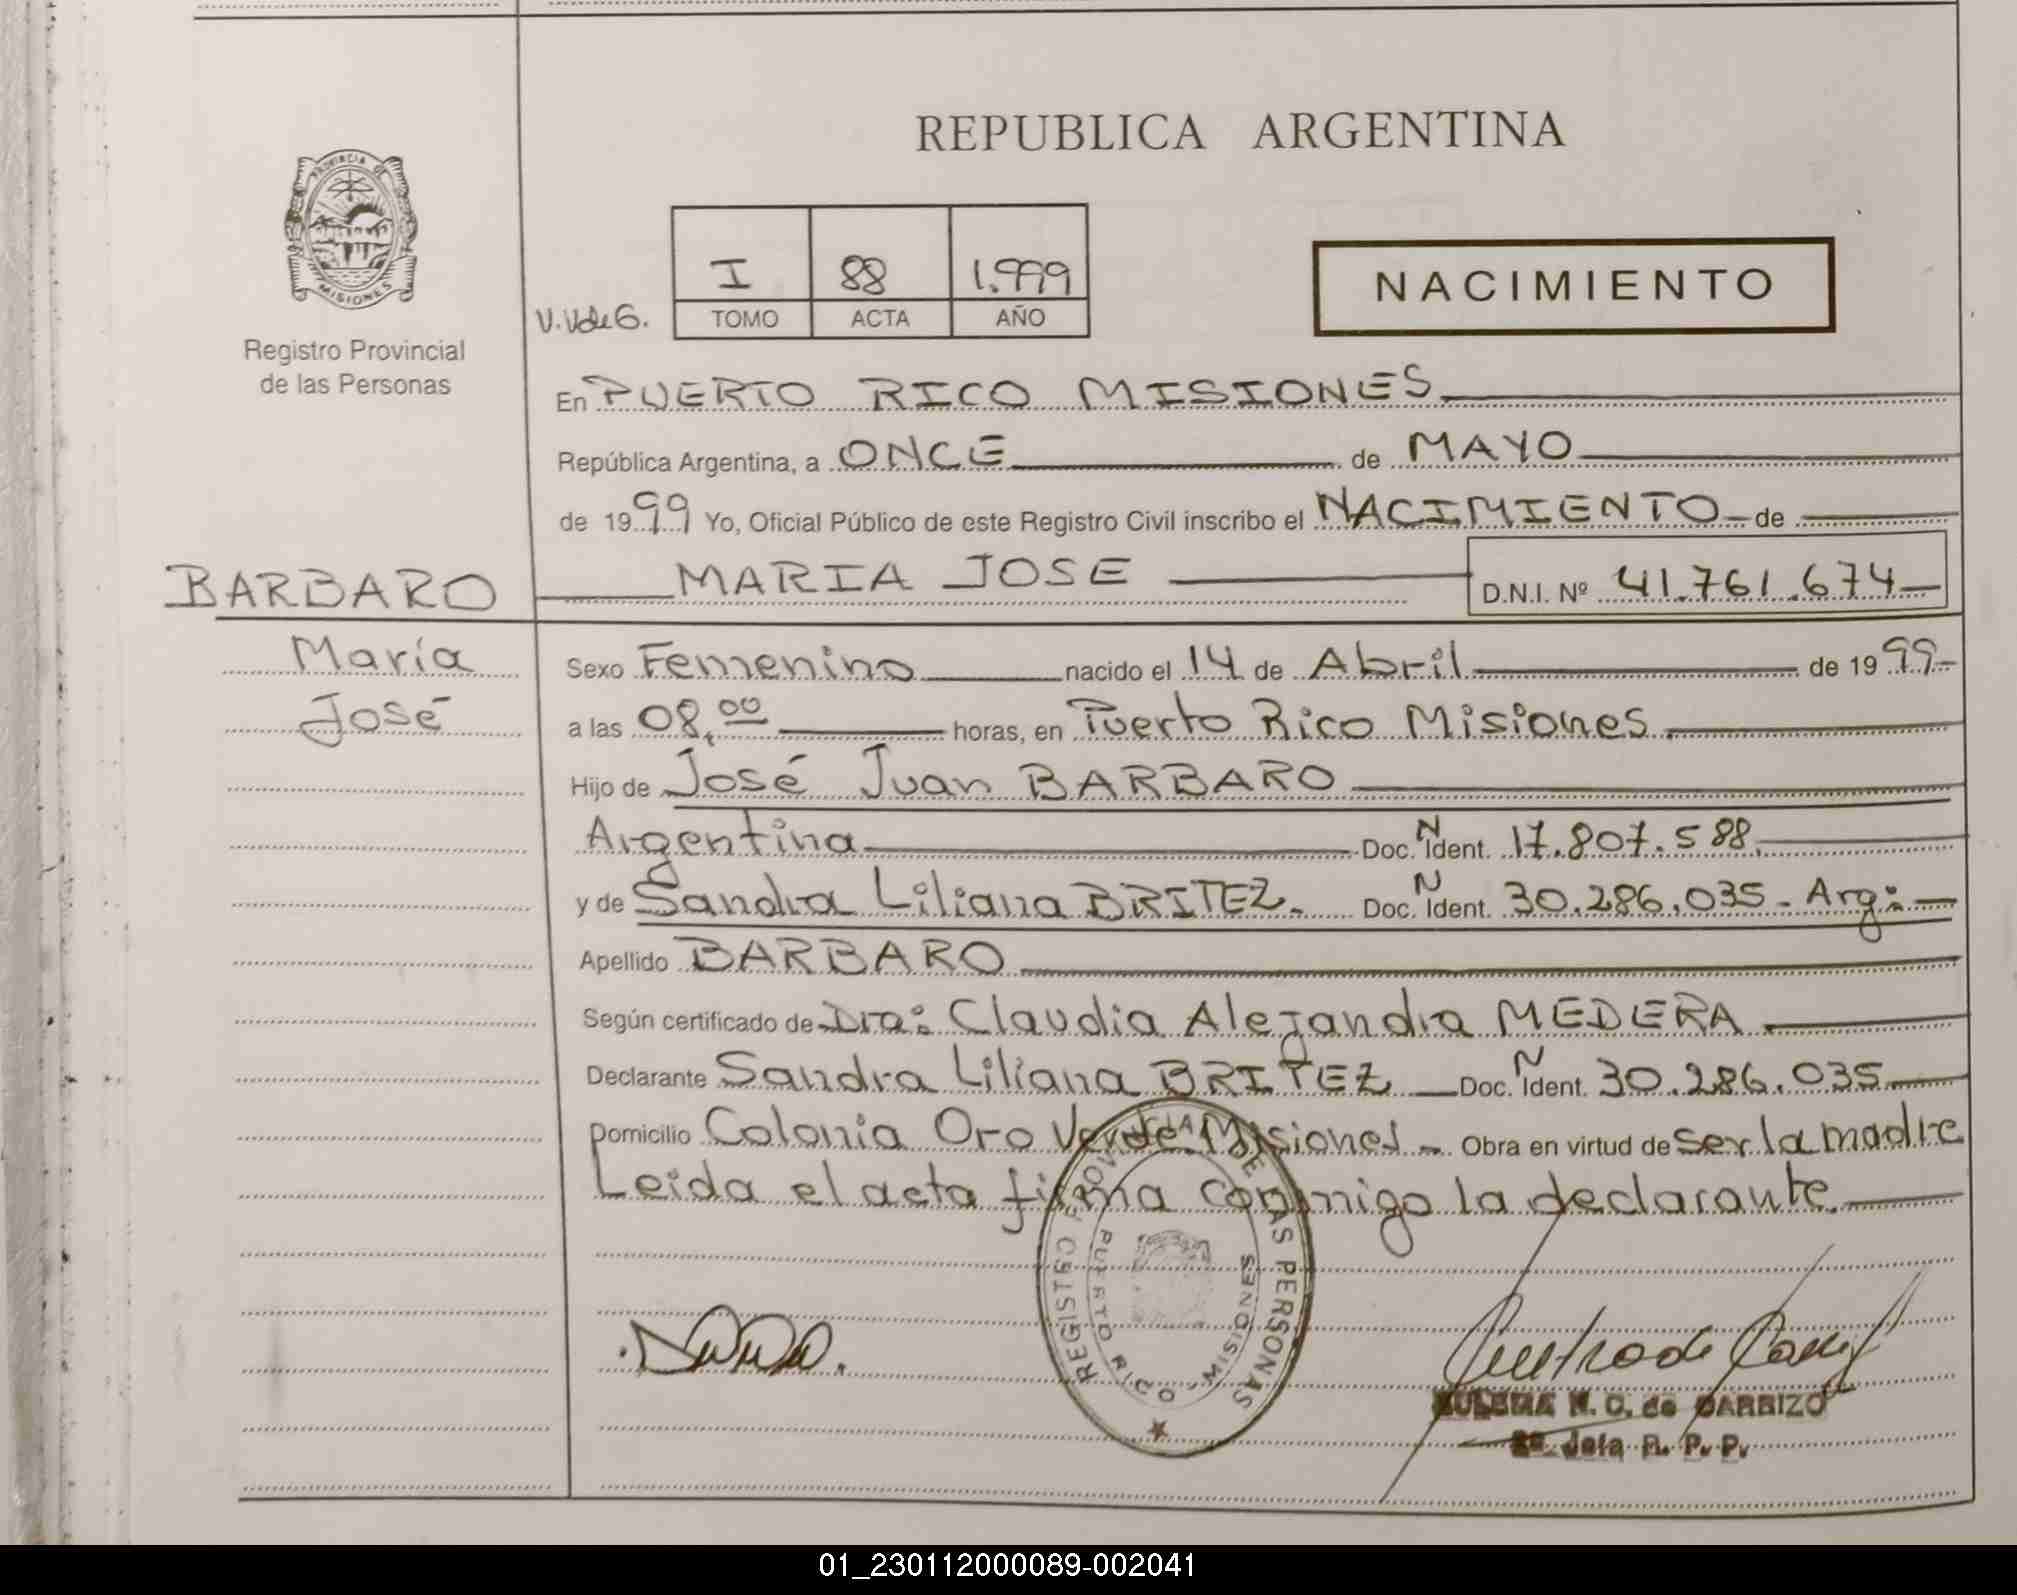 REPUBLICA ARGENTINA
PROVINCIA DE
MISIONES
Registro Provincial
de las Personas
I 88 1.999
V.V de G. TOMO ACTA AÑO
NACIMIENTO
En PUERTO RICO MISIONES
República Argentina, a ONCE de MAYO
de 1999 Yo, Oficial Público de este Registro Civil inscribo el NACIMIENTO de
BARBARO MARIA JOSE D.N.I. Nº 41.761.674
María Sexo Femenino nacido el 14 de Abril de 1999
José a las 08,00 horas, en Puerto Rico Misiones.
Hijo de José Juan BARBARO
Argentina Doc. N Ident. 17.807.588.
y de Sandra Liliana BRITEZ. Doc. N Ident. 30.286.035 - Arg:
Apellido BARBARO
Según certificado de Dra: Claudia Alejandra MEDERA
Declarante Sandra Liliana BRITEZ Doc. N Ident. 30.286.035
Domicilio Colonia Oro Verde Misiones - Obra en virtud de ser la madre
Leida el acta firma conmigo la declarante.
REGISTRO PROVINCIAL DE LAS PERSONAS
PUERTO RICO - MISIONES
N. C. de CARRIZO
Jefa R. P. P.
01_230112000089-002041